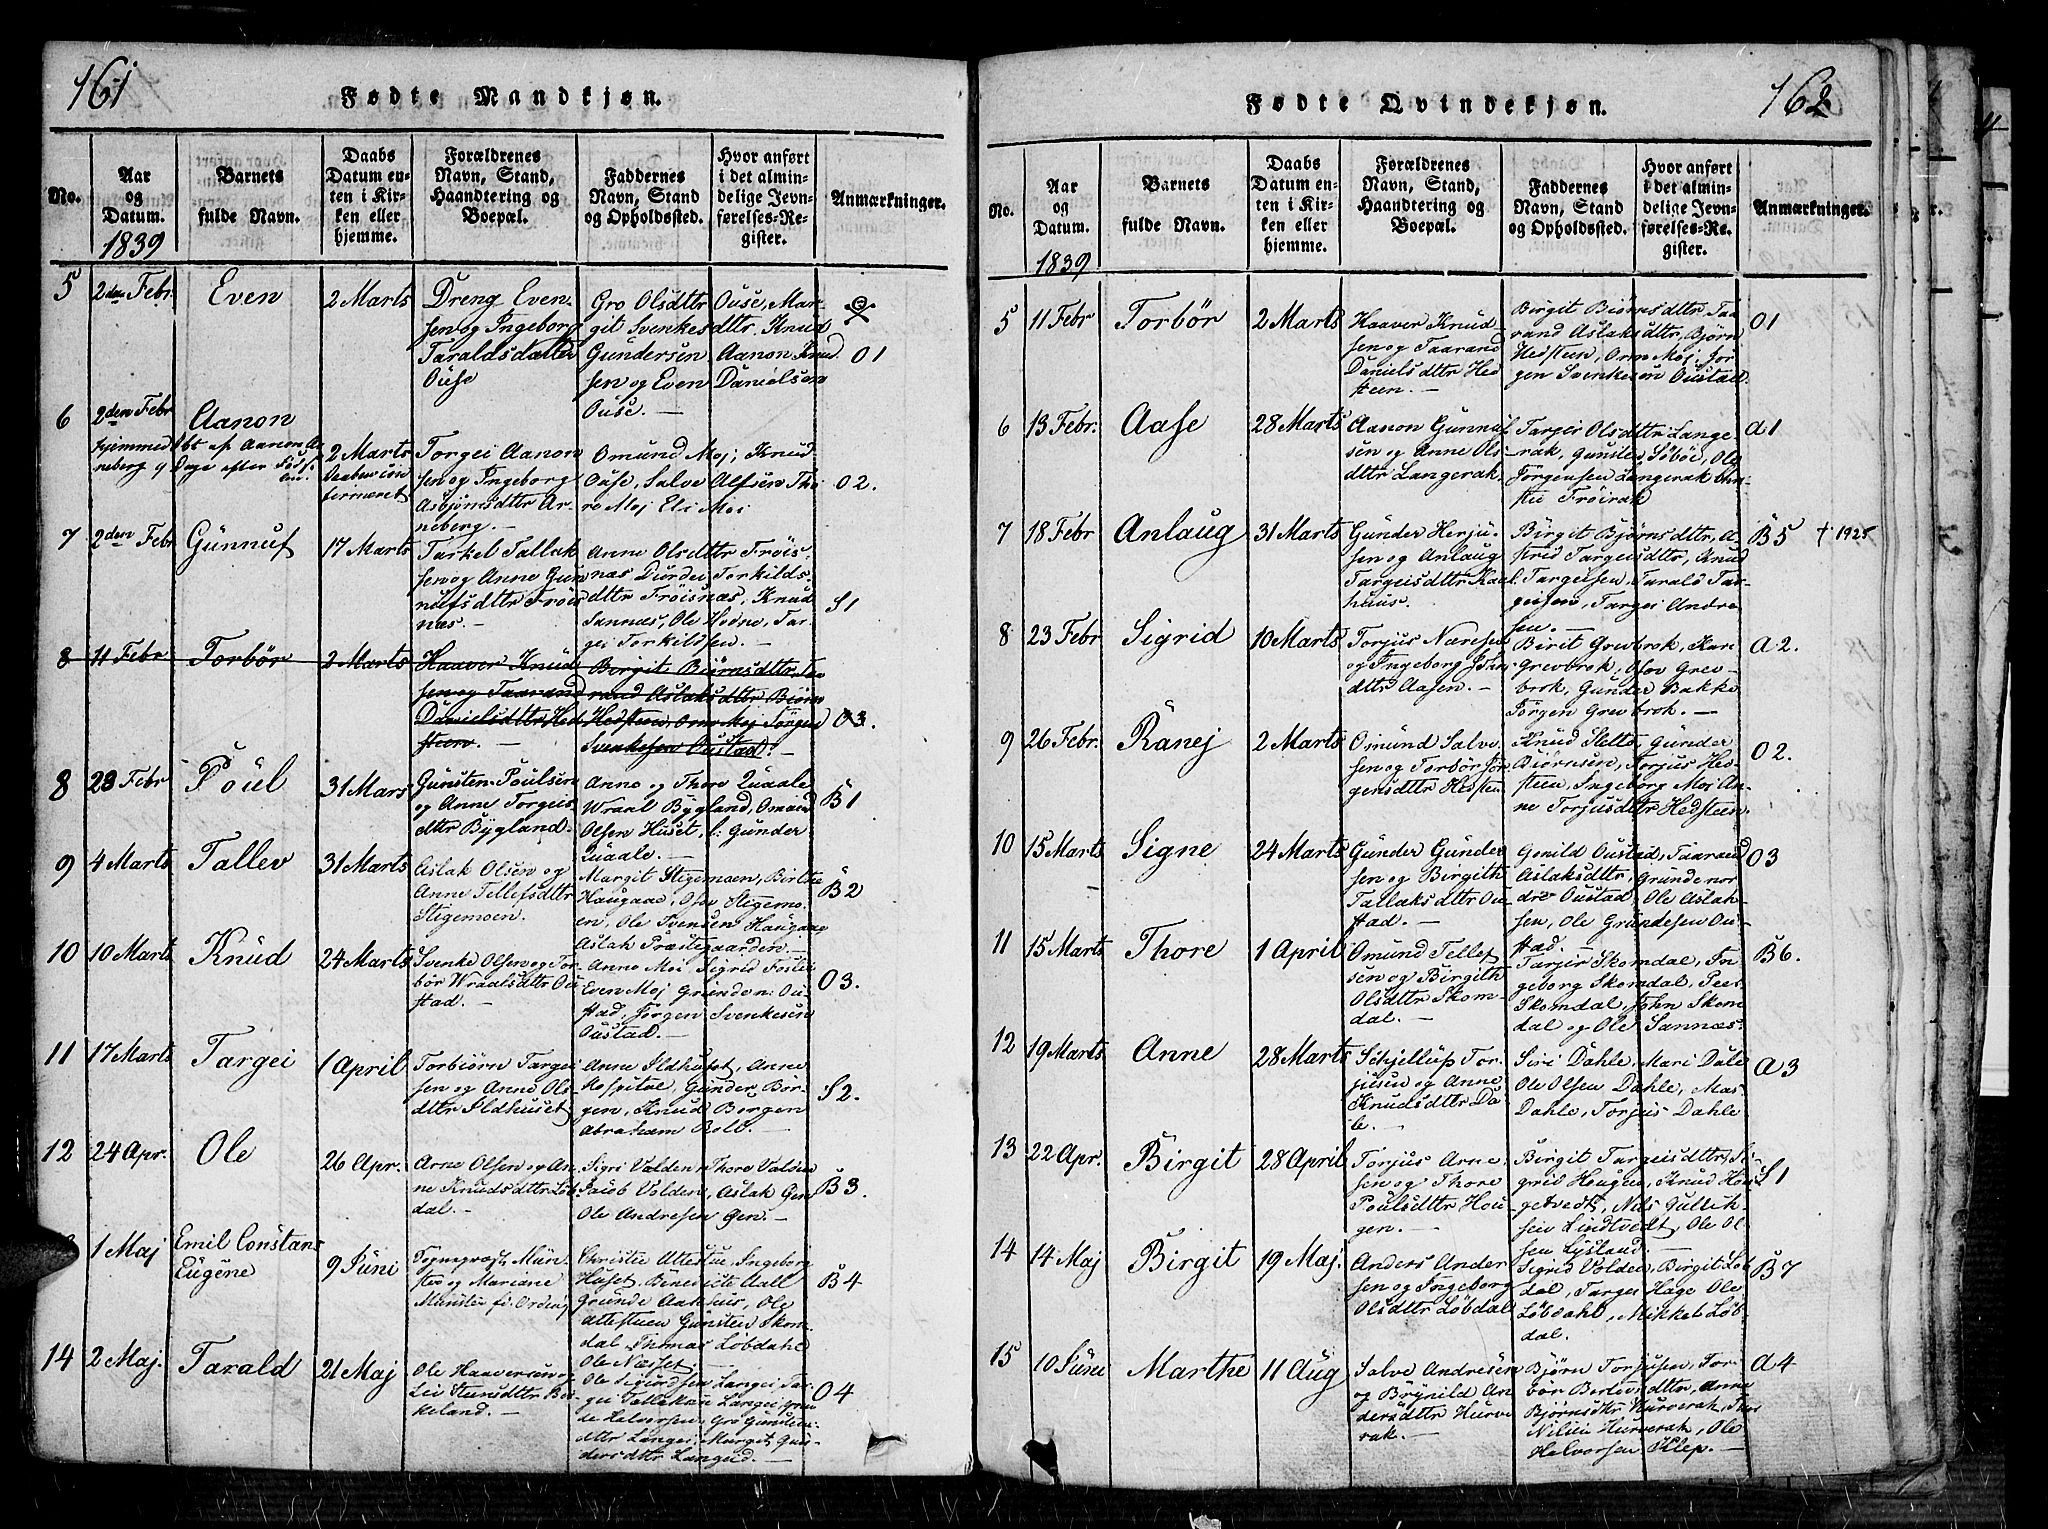 161
Fødte Mandkjøn.
No.
Aar
og
Datum.
1839
Barnets
fulde Navn.
Daabs
Datum en-
ten i Kir-
ken eller
hjemme.
Forældrenes
Navn, Stand,
Haandtering og
Boepæl.
Faddernes
Navn, Stand
og Opholdssted.
Hvor anført
i det almin-
delige Jevn-
førelses-Re-
gister.
Anmærkninger.
5
2den Febr.
Even
2 Marts
Dreng Even-
sen og Ingeborg
Taraldsdatter
Ouse
Gro Olsdttr Ouse, Mar-
git Svenkesdttr, Knud
Gundersen Aanon Knud-
sen og Even Danielsen
Ouse. —
O 1
6
2den Febr
Aanon
hjemmedöbt af Aanon Ar-
neberg 9 Dage efter Föds-
len.
2 Marts
Daaben con-
fermeret
Torgei Aanon-
sen og Ingeborg
Asbjönsdttr Ar-
neberg. —
Omund Moj, Knud
Ouse, Salve Alfsen Tho-
re Moj Eli Moi
O 2.
7
2den Febr
Gunnuf
17 Marts
Tarkel Tallak-
sen og Anne Gun-
nufsdttr Fröis-
næs. —
Anne Olsdttr Fröis-
næs Dordei Torkilds-
dttr Fröisnæs, Knud
Sannæs, Ole Hodne, Tar-
gei Torkildsen.
S1
8
11 Febr
Torbör
2 Marts
Haaver Knud-
sen og Taarand
Danielsdttr Hed-
steen. —
Bergit Biörnsdttr, Taa-
rand Aslaksdttr Biörn
Hedsteen, Orm Moj Jörgen
Svenkesen Oustad.
O3.
8
23 Febr
Poul
31 Mars
Gunsten Poulsen
og Anne Torgeis-
dttr Bygland.
Anne og Thore Quaale
Wraal Bygland, Omund
Olsen Huset, l: Gunder
Quaale.
B1
9
4 Marts
Tallev
31 Marts
Aslak Olsen og
Anne Tellefsdttr
Stigemoen.
Margit Stigemoen, Birthe
Haugaae, Osov Stigemo-
en, Ole Svensen Haugaae,
Aslak Præstegaarden. —
B2
10
10 Marts
Knud
24 Marts
Svenke Olsen og Tor-
bör Wraalsdttr Ou-
stad. —
Anne Moi Sigrid Foslie
Even Moj Grunden: Ou-
stad, Jörgen Svenkesen
Oustad. —
O3.
11
17 Marts
Targei
1 April
Torbiörn Targei-
sen og Anne Ols-
dttr Ildhuset
Anne Ildhuset, Anne
Hospitve, Gunder Bör-
gen, Knud Borgen
Abraham Rolv. —
S2.
12
24 Apr.
Ole
26 Apr.
Arne Olsen og An-
ne Knudsdttr Löb-
dal. —
Sigri Valden Thore Valden
Jacob Volden, Aslak Gen
Ole Andresen Gen. —
B3.
1 Maj
Emil Constans
Eugéne
9 Juni
Sogne­præst Mün-
ster og Mariane
Munster fö: Ording
Christie Attestue, Ingeborg
Huset, Benedicte Aall
Grunde Aakhus, Ole
Attestuen Gunsten Skom-
dal Thomas Löbdahl
Ole Næsset
B4
14
2 Maj.
Tarald
21 Maj
Ole Haaversen og
Liv Steensdttr Bir-
keland. —
Ole Sigurdsen Langei Tar-
gei Tallaksen Langei, Grun-
de Helvorsen, Gro Gunstens-
dttr Langei, Margit Gun-
dersdttr Langeid. —
O4
162
Fødte Qvindekjøn.
No.
Aar
og
Datum.
1839
Barnets
fulde Navn.
Daabs
Datum en-
ten i Kir-
ken eller
hjemme.
Forældrenes
Navn, Stand,
Haandtering og
Boepæl.
Faddernes
Navn, Stand
og Opholdssted.
Hvor anført
i det almin-
delige Jevn-
førelses-Re-
gister.
Anmærkninger.
5
11 Febr
Torbör
2 Marts
Haaver Knud-
sen og Taarand
Danielsdttr Hed-
steen. —
Birgit Biörnsdttr, Taa-
rand Aslaksdttr, Björn
Hedsteen, Orm Moj, Jör-
gen Svenkesen Oustad.
O1
6
13 Febr.
Aase
28 Marts
Aanon Gunnuf-
sen og Anne Ols-
dttr Langerak
Targei Olsdttr Lange-
rak, Gunsten Söböe, Ole
Jörgensen Langerak
Fröirak
A1
7
18 Febr
Anlaug
31 Marts
Gunder Herju-
sen og Anlaug
Targeisdttr Kaal-
huus.
Birgit Bjørnsdttr, A-
strid Targeisdttr, Knud
Targeisen, Tarald Tar-
geisen, Targei Andre-
sen. —
B5
† 1925
8
23 Febr
Sigrid
10 Marts
Torjus Næresen
og Ingeborg John-
dttr Aasen. —
Birit Grevbrok, Kari
Grevbrok, Osov Grev-
brok, Gunder Bakke
Jörgen Grevbrok. —
A2.
9
26 Febr.
Ranej
2 Marts
Omund Salve-
sen og Torbör Jör-
gensdttr Hedsten
Knud Sletto, Gunder
Biörnsen, Torjus Hed-
steen, Ingeborg Moj An-
ne Torjusdttr Hedsteen
O2.
10
15 Marts
Signe
24 Marts
Gunder Gunder-
sen og Birgith
Tallaksdttr Ou-
stad. —
Gonild Oustad, Taarand
Aslaksdttr, Grunde nor-
dre Oustad, Ole Aslak-
sen, Ole Grundesen Ou-
stad.
O3
11
15 Marts
Thore
1 April
Omund Tellef-
sen og Birgith
Olsdttr Skom-
dal. —
Tarjer Skomdal, In-
geborg Skomdal, Peer
Skomdal, John Skom-
dal og Ole Sannæs.
B6.
12
19 Marts
Anne
28 Marts
Schjellup Tor-
jusen og Anne
Knudsdttr Da-
le. —
Siri Dahle, Mari Dale
Ole Olsen Dahle, Mas
Dahle, Torjus Dahle
A3
13
22 Apr.
Birgit
28 April
Torjus Arne-
sen og Thore
Poulsdttr Hou-
gen. —
Birgit Targeisdttr, Si-
grid Hougen, Knud Hou-
getvedt, Nils Gullik-
sen Lindtvedt, Ole Ol-
sen Lysland. —
S1
14
14 Maj
Birgit
19 Maj.
Anders Ander-
sen og Ingeborg
Olsdttr Löbdal
Sigrid Volden, Birgit Löb-
dal, Targei Hage Ole
Löbdahl, Mikkel Löb-
dal.
B7
15
10 June
Marthe
11 Aug
Salve Andresen
og Brynild An-
dersdttr Hurve-
rak. —
Bjørn Torjusen, Tor-
bör Bertevsdttr, Anne
Bjørnsdttr Hurverak, Thor
Nilsen Hurverak, Ole
Helvorsen Klep. —
A4